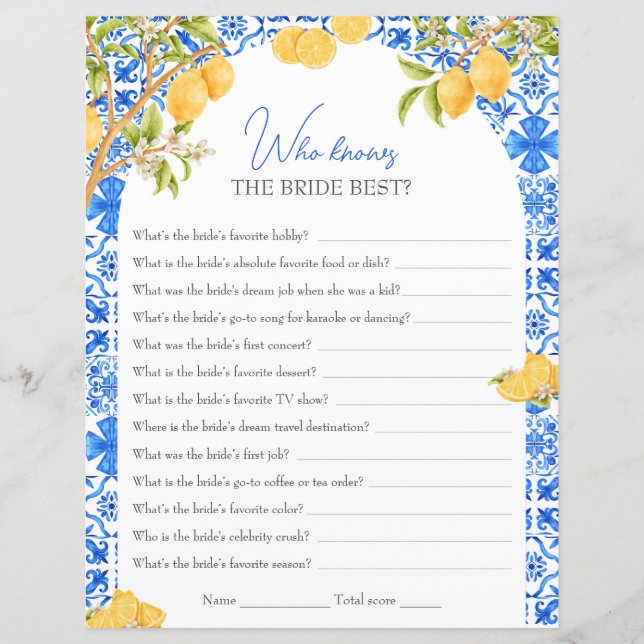 Who knows
THE BRIDE BEST?
What's the bride's favorite hobby? ____________
What is the bride's absolute favorite food or dish? ____________
What was the bride's dream job when she was a kid? ____________
What's the bride's go-to song for karaoke or dancing? ____________
What was the bride's first concert? ____________
What is the bride's favorite dessert? ____________
What is the bride's favorite TV show? ____________
Where is the bride's dream travel destination? ____________
What was the bride's first job? ____________
What is the bride's go-to coffee or tea order? ____________
What's the bride's favorite color? ____________
Who is the bride's celebrity crush? ____________
What's the bride's favorite season? ____________
Name ____________ Total score _____